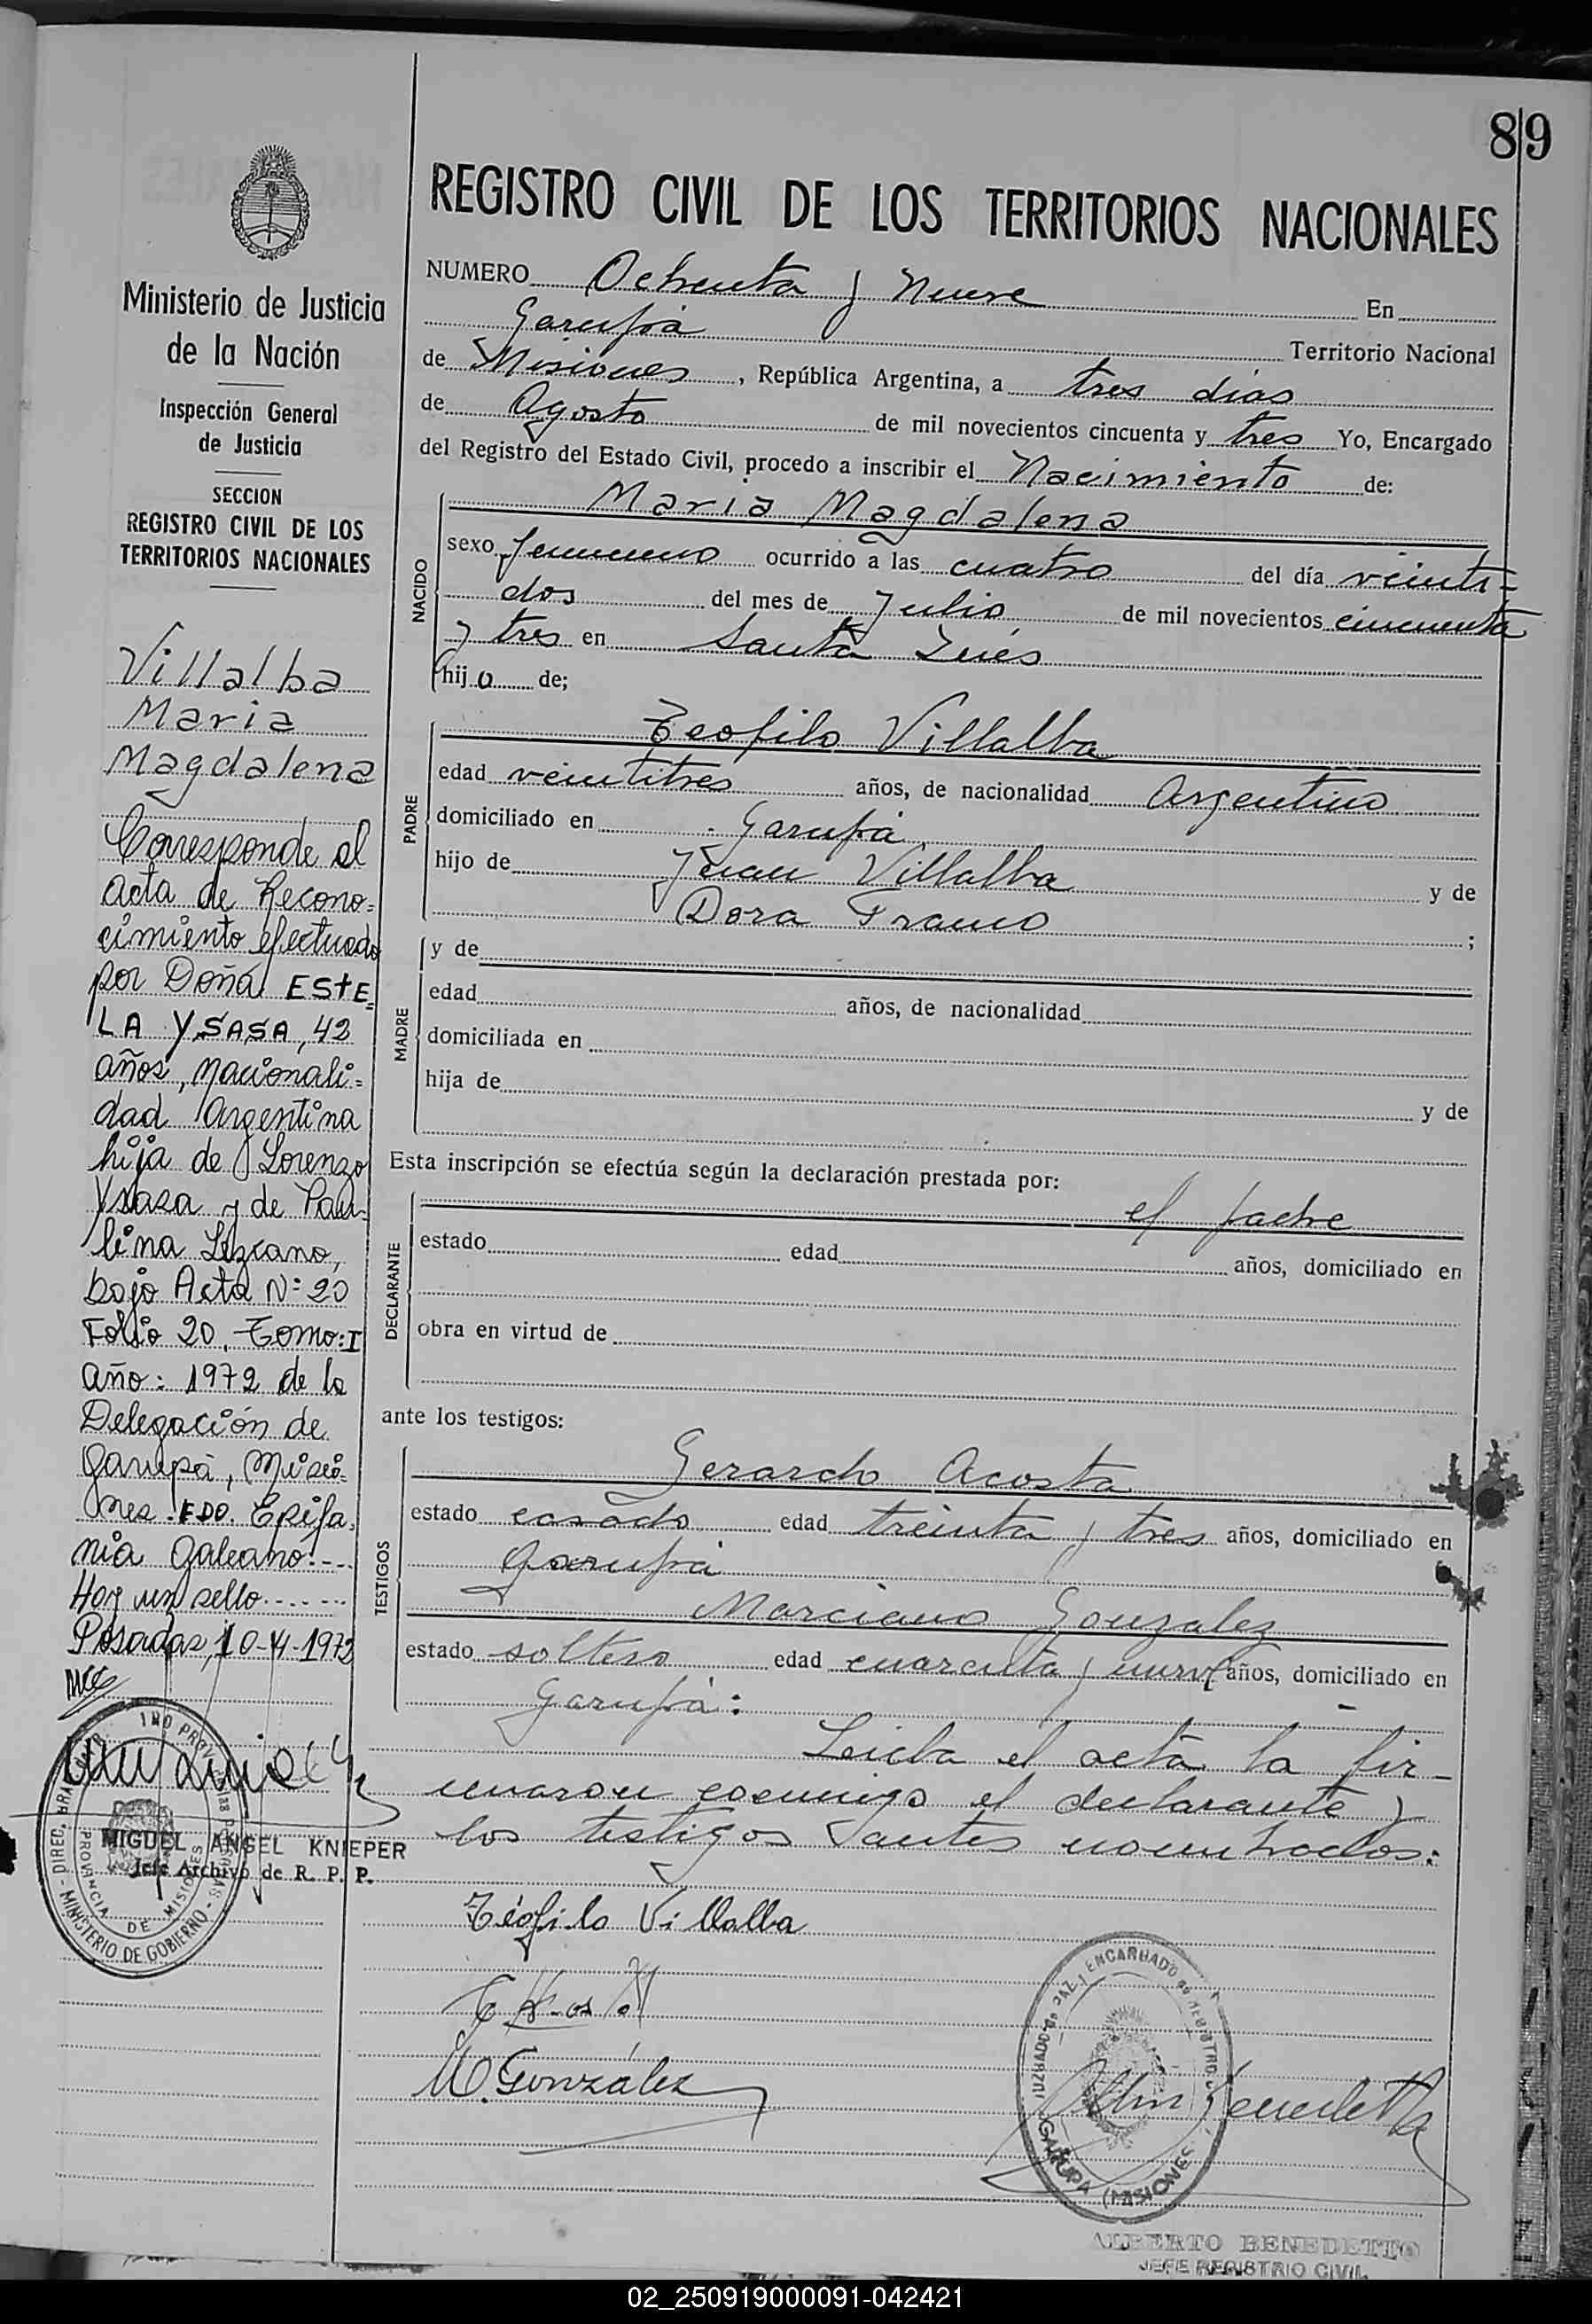 89
REGISTRO CIVIL DE LOS TERRITORIOS NACIONALES
Ministerio de Justicia
de la Nación
Inspección General
de Justicia
SECCION
REGISTRO CIVIL DE LOS
TERRITORIOS NACIONALES
Villalba
Maria
Magdalena
Corresponde al
acta de Recono=
cimiento efectuado
por Doña ESTE=
LA YSASA, 42
años, nacionali=
dad Argentina
hija de Lorenzo
Ysasa y de Pau=
lina Lezcano,
bajo Acta Nº 20
Folio 20. Tomo: I
año: 1972 de la
Delegación de
Garupá, Misio=
nes. FDO. Epifa
nia Galeano. ---
Hay un sello ------
Posadas, 10-4-1972
MIGUEL ANGEL KNIEPER
Jefe Archivo de R. P. P.
MINISTERIO DE GOBIERNO
PROVINCIA DE MISIONES
NUMERO Ochenta y Nueve En
Garupá Territorio Nacional
de Misiones, República Argentina, a tres dias
de Agosto de mil novecientos cincuenta y tres Yo, Encargado
del Registro del Estado Civil, procedo a inscribir el Nacimiento de:
NACIDO
Maria Magdalena
sexo femenino ocurrido a las cuatro del día veinti=
dos del mes de Julio de mil novecientos cincuenta
y tres en Santa Inés
hija de;
PADRE
Teofilo Villalba
edad veintitres años, de nacionalidad Argentino
domiciliado en Garupá
hijo de Juan Villalba y de
Dora Franco ;
MADRE
y de
edad años, de nacionalidad
domiciliada en
hija de y de
Esta inscripción se efectúa según la declaración prestada por:
DECLARANTE
el padre
estado edad años, domiciliado en
obra en virtud de
ante los testigos:
TESTIGOS
Gerardo Acosta
estado casado edad treinta y tres años, domiciliado en
Garupá
Marciano Gonzalez
estado soltero edad cuarenta y nueve años, domiciliado en
Garupá:
Leida el acta la fir-
maron conmigo el declarante y
los testigos antes nombrados:
Teófilo Villalba
M. González
JUZGADO DE PAZ Y ENCARGADO DE REGISTRO
GARUPA (MISIONES
ALBERTO BENEDETTO
JEFE REGISTRO CIVIL
02_250919000091-042421